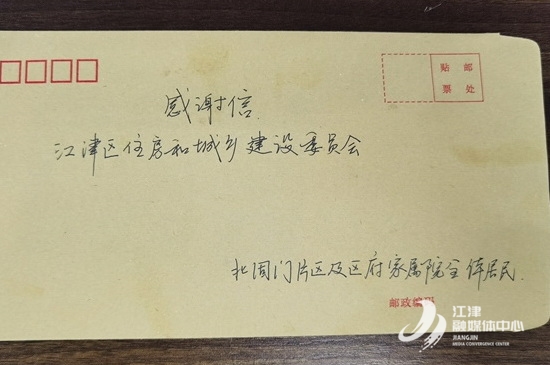 贴 邮
票 处
感谢信
江津区住房和城乡建设委员会
北固门片区及区府家属院全体居民
邮政编码
江津
融媒体中心
JIANGJIN
MEDIA CONVERGENCE CENTER